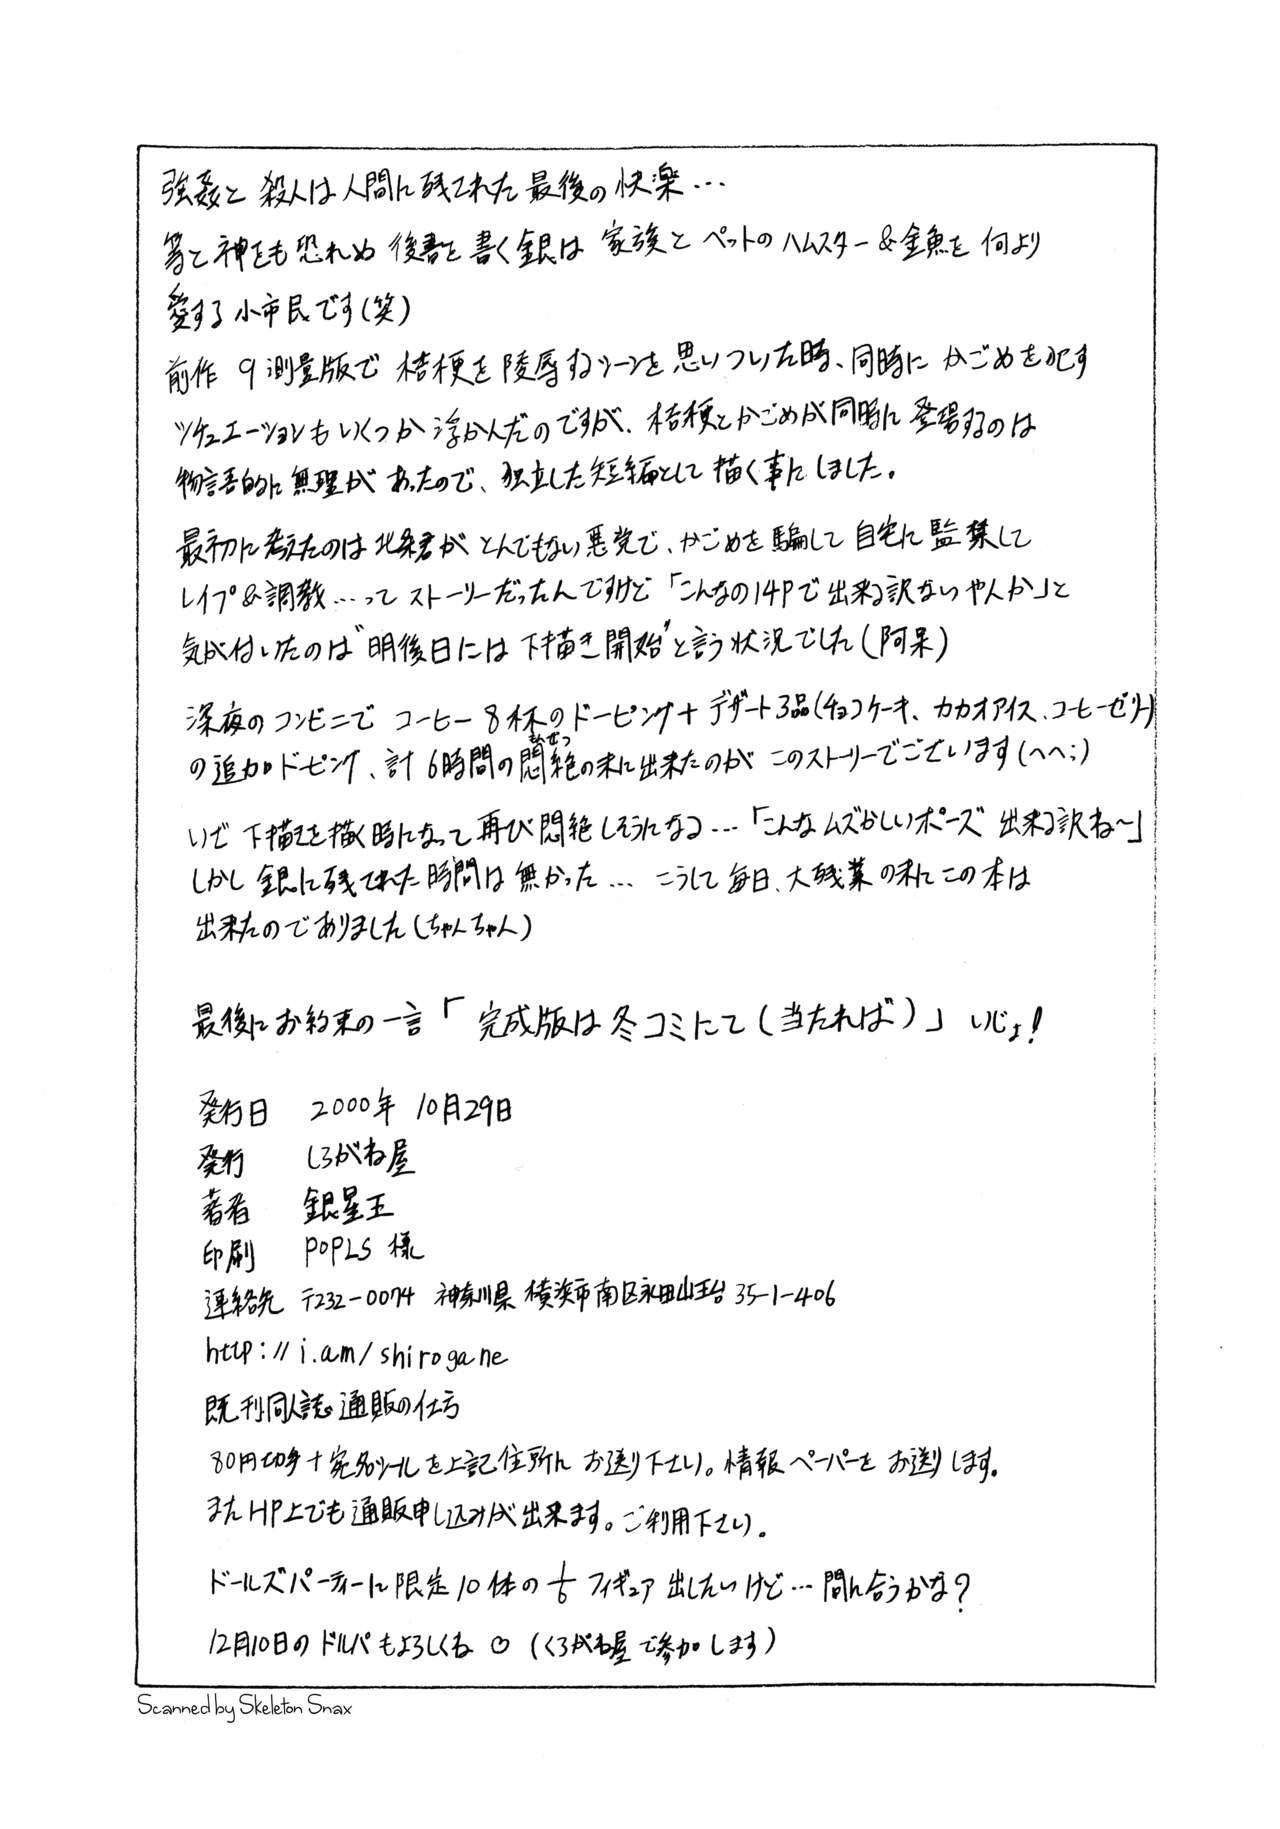 強姦と殺人は人間に残された最後の快楽…
等と神をも恐れぬ後書を書く銀は家族とペットのハムスター&金魚を何より
愛する小市民です(笑)
前作 9測量版で桔梗を陵辱するシーンを思いついた時、同時にかごめを犯す
シチュエーションもいくつか浮かんだのですが、桔梗とかごめが同時に登場するのは
物語的に無理があったので、独立した短編として描く事にしました。
最初に考えたのは北条君がとんでもない悪党で、かごめを騙して自宅に監禁して
レイプ&調教…ってストーリーだったんですけど「こんなの14Pで出来る訳ないやんか」と
気が付いたのは"明後日には下描き開始"と言う状況でした(阿呆)
深夜のコンビニでコーヒー8杯のドーピング+デザート3品(チョコケーキ、カカオアイス、コーヒーゼリー)
の追加ドーピング、計6時間の悶絶の末に出来たのがこのストーリーでございます(へへ;)
いざ下描きを描く時になって再び悶絶しそうになる…「こんなムズかしいポーズ出来る訳ね〜」
しかし銀に残された時間は無かった…こうして毎日、大残業の末にこの本は
出来たのでありました(ちゃんちゃん)
最後にお約束の一言「完成版は冬コミにて(当たれば)」いじょ!
発行日 2000年 10月29日
発行 しろがね屋
著者 銀星王
印刷 POPLS 様
連絡先 〒232-0074 神奈川県横浜市南区永田山王台35-1-406
http://i.am/shirogane
既刊同人誌通販の仕方
80円切手+宛名シールを上記住所にお送り下さい。情報ペーパーをお送りします。
またHP上でも通販申し込みが出来ます。ご利用下さい。
ドールズパーティーに限定10体の1/6フィギュア出したいけど…間に合うかな?
12月10日のドルパもよろしくね♡(くろがね屋で参加します)
Scanned by Skeleton Snax